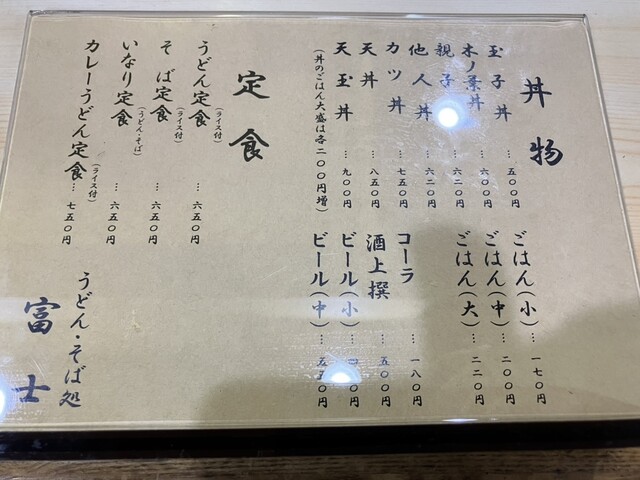 丼物
玉子丼…五〇〇円
木ノ葉丼…六〇〇円
親子丼…六二〇円
他人丼…六二〇円
カツ丼…七五〇円
天丼…八五〇円
天玉丼…九〇〇円
(丼のごはん大盛は各二〇〇円増)
ごはん(小)…一七〇円
ごはん(中)…二〇〇円
ごはん(大)…二二〇円
コーラ…一八〇円
酒上撰…五〇〇円
ビール(小)…〇円
ビール(中)…五五〇円
定食
うどん定食(ライス付)…六五〇円
そば定食(ライス付)…六五〇円
いなり定食(うどん・そば)…六五〇円
カレーうどん定食(ライス付)…七五〇円
うどん・そば処
富士